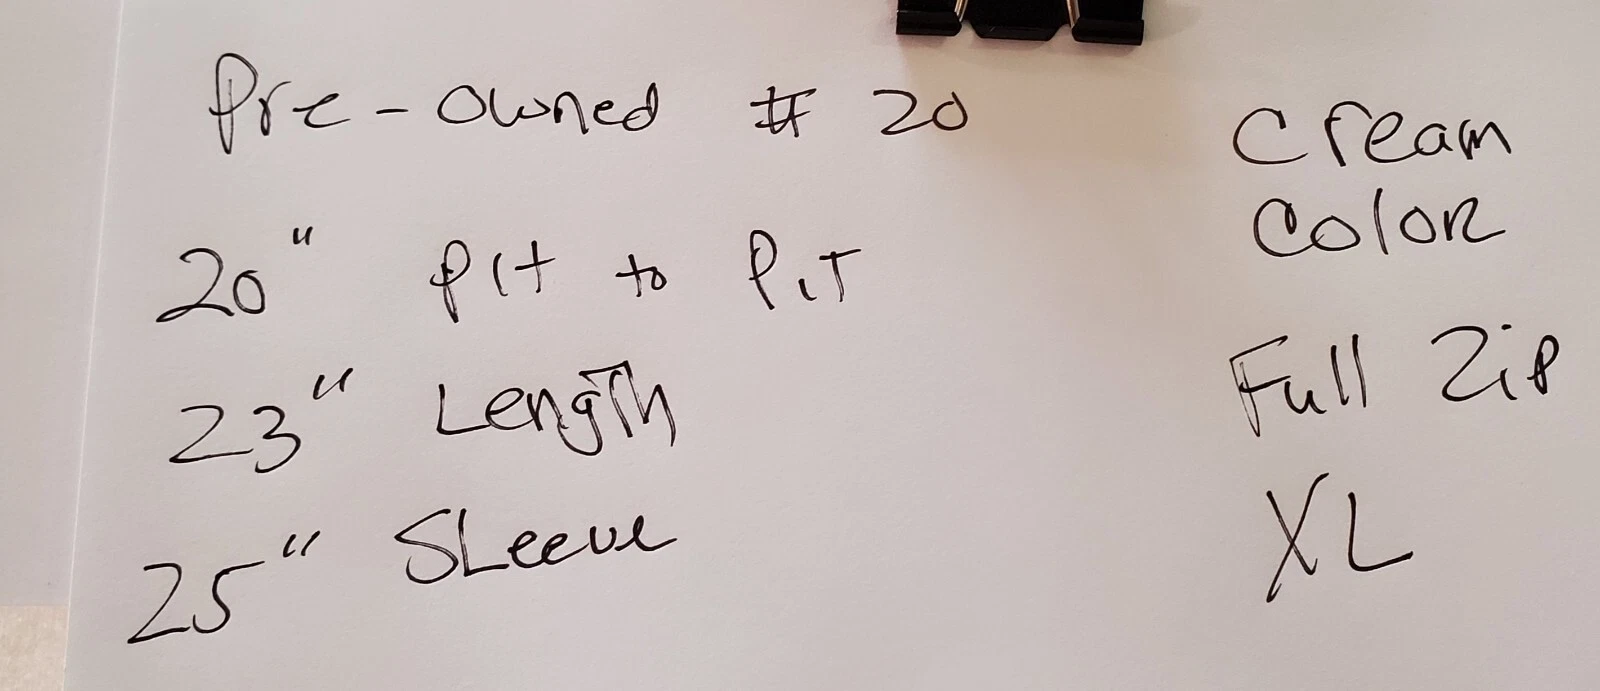 Pre-owned # 20
20" Pit to Pit
23" Length
25" Sleeve
Cream
Color
Full Zip
XL